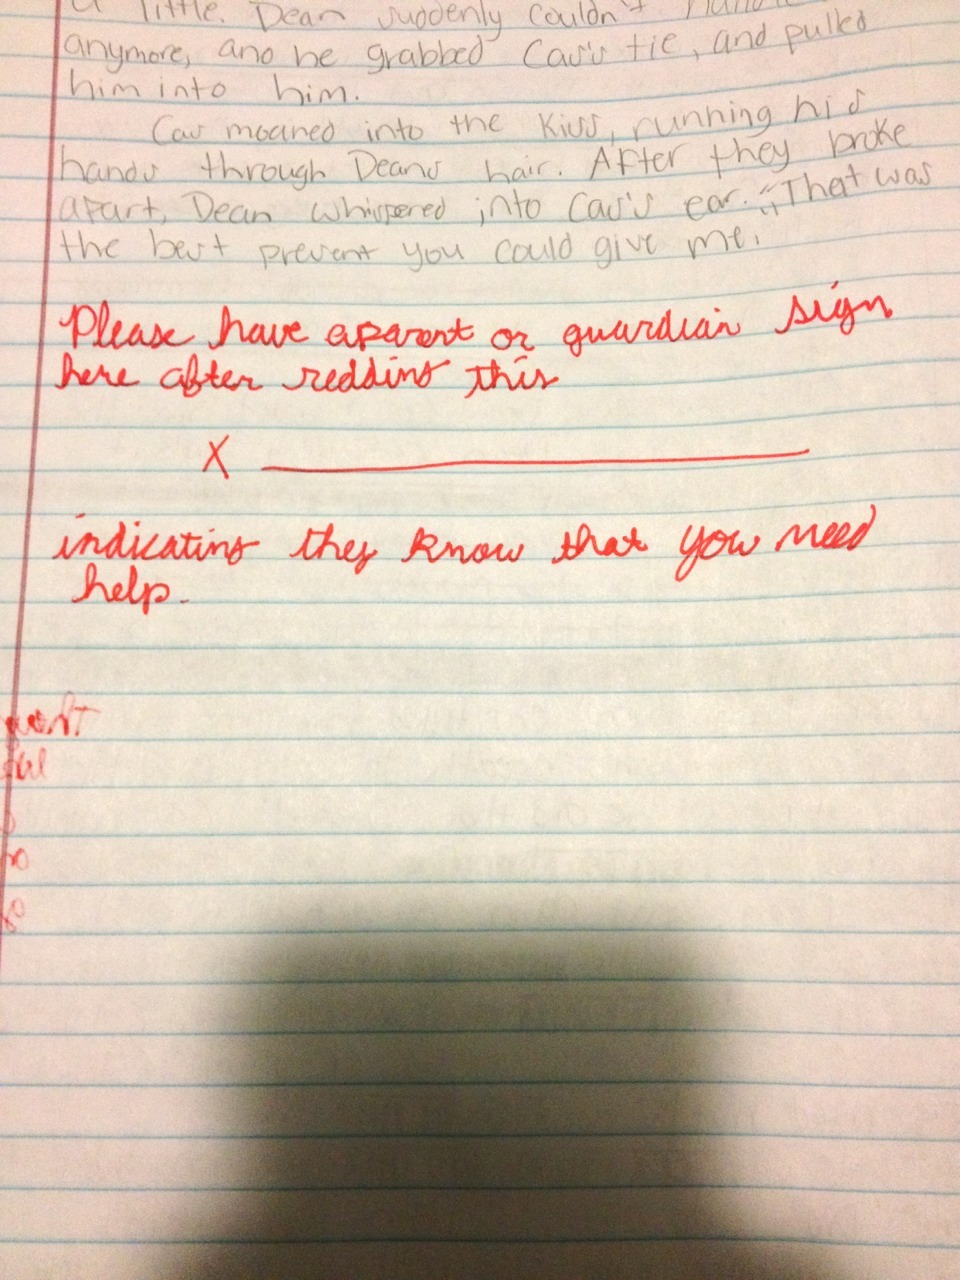 a little. Dean suddenly couldn't
anymore, and he grabbed Cas's tie, and pulled
him into him.
Cas moaned into the kiss, running his
hands through Deans hair. After they broke
apart, Dean whispered into Cas's ear. "That was
the best present you could give me.
Please have a parent or guardian sign
here after redding this
X
indicating they know that you need
help.